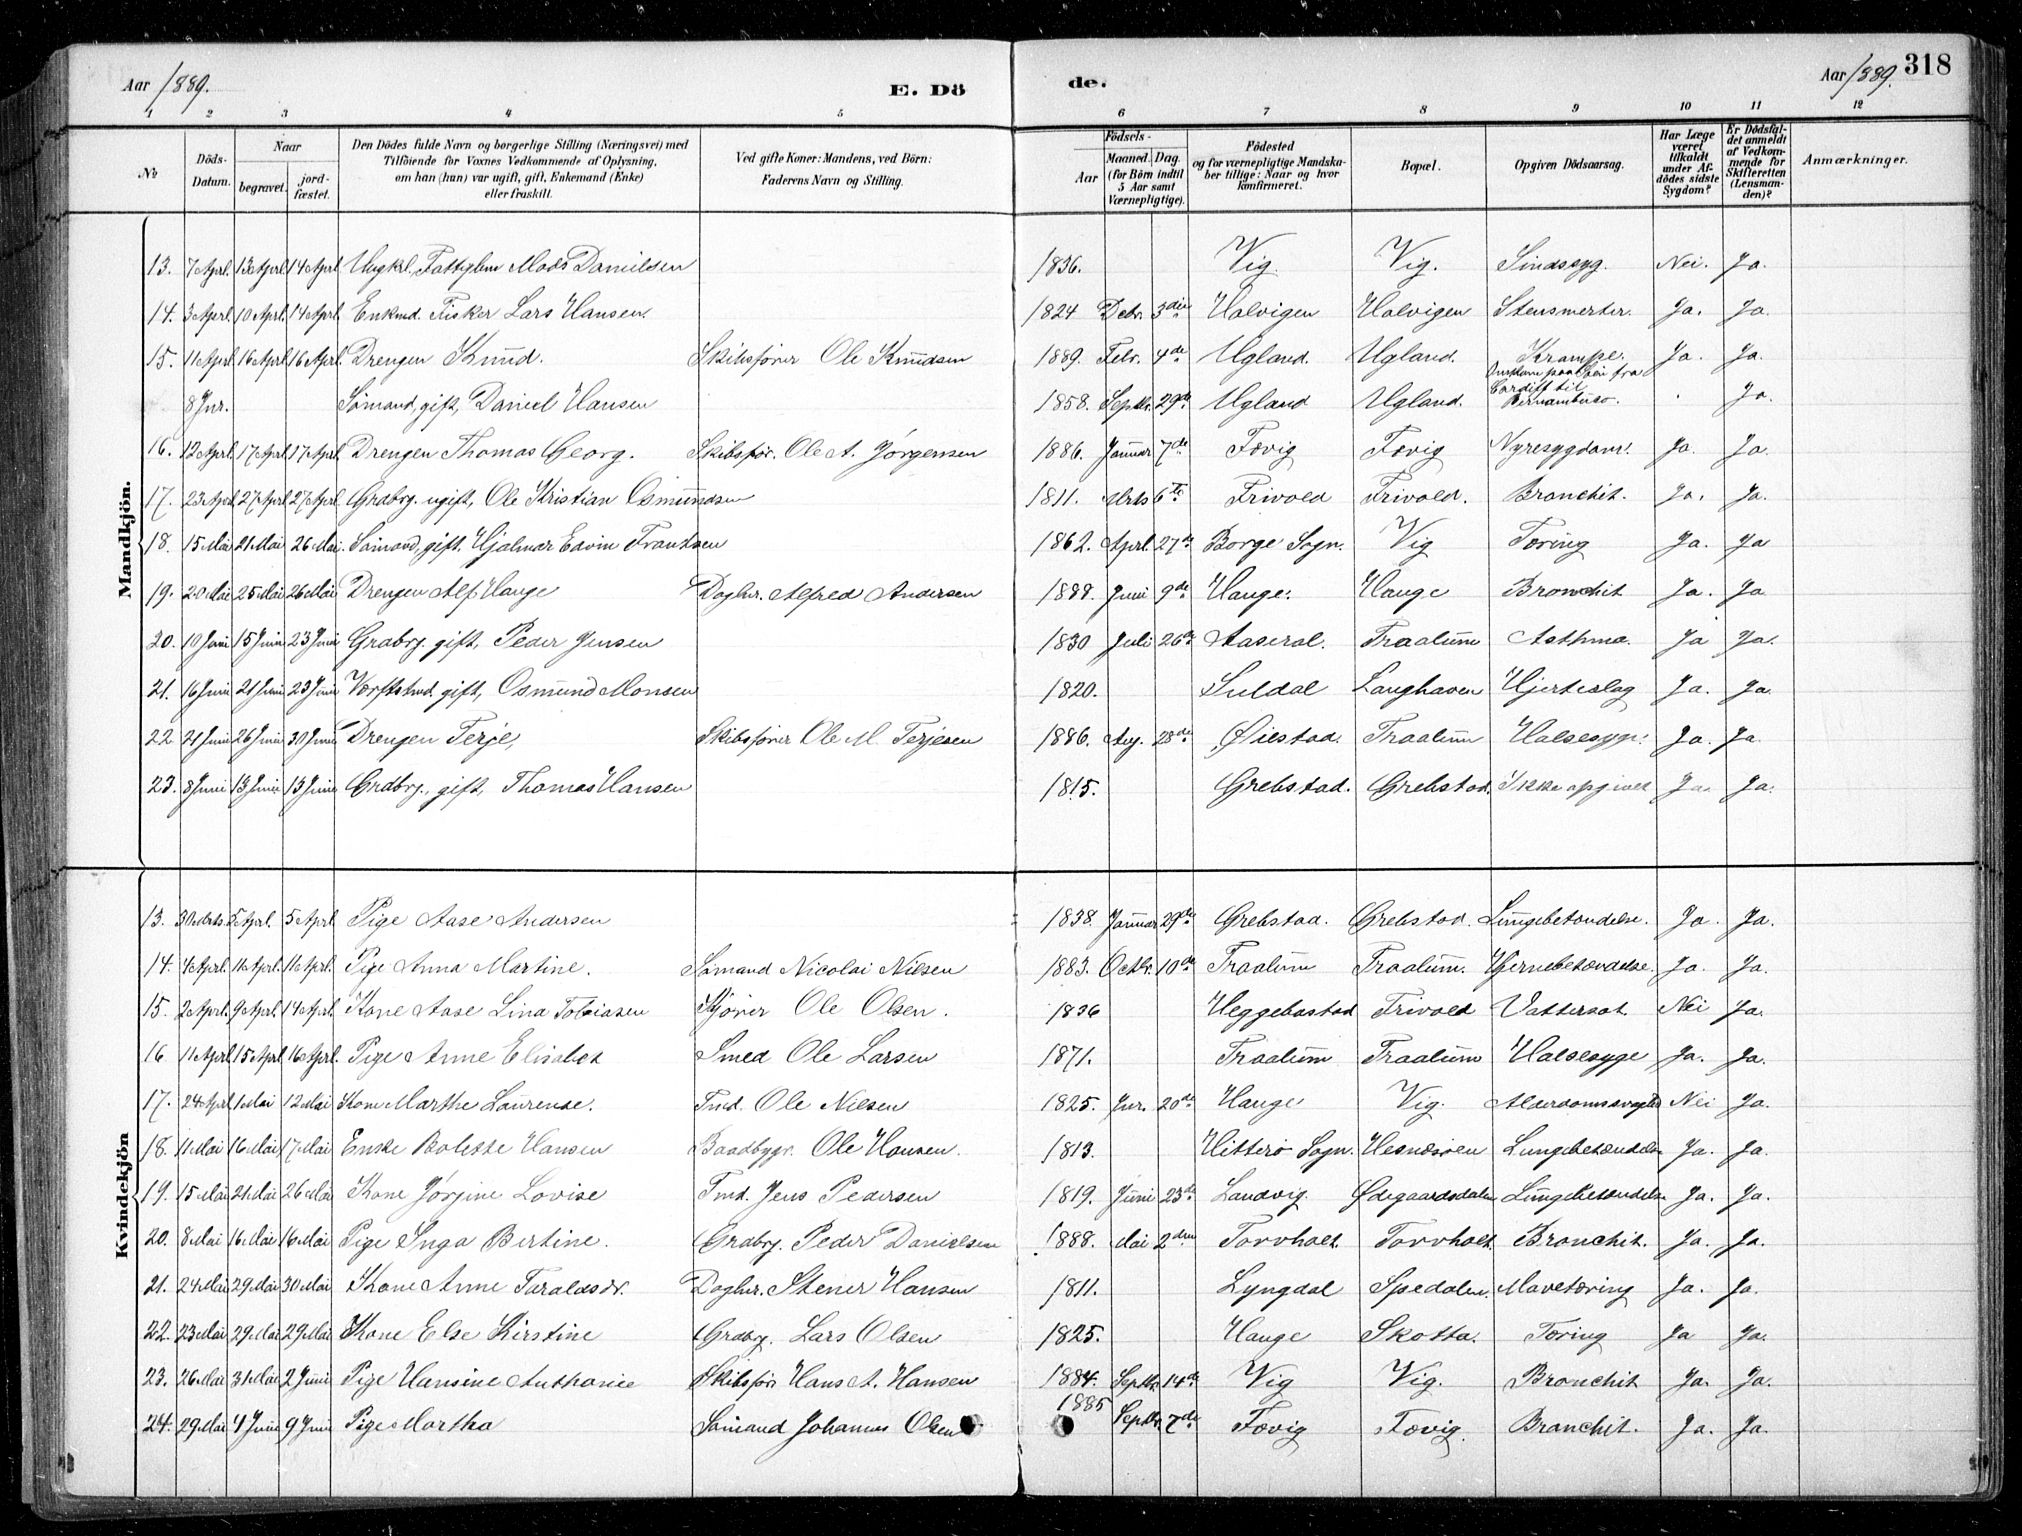 Aar 1889.
E. Dö
de.
Aar 1889.
318
1 2 3 4 5 6 7 8 9 10 11 12
No
Döds-Datum.
Naar
begravet.
jord-fæstet.
Den Dödes fulde Navn og borgerlige Stilling (Næringsvei) med
Tilföiende for Voxnes Vedkommende af Oplysning,
om han (hun) var ugift, gift, Enkemand (Enke)
eller fraskilt.
Ved gifte Koner: Mandens, ved Börn:
Faderens Navn og Stilling.
Födsels-
Aar
Maaned. Dag.
(for Börn indtil
5 Aar samt
Værnepligtige).
Födested
og for værnepligtige Mandska-
ber tillige: Naar og hvor
konfirmeret.
Bopæl.
Opgiven Dödsaarsag.
Har Læge
været
tilkaldt
under Af-
dödes sidste
Sygdom?
Er Dödsfal-
det anmeldt
af Vedkom-
mende for
Skifteretten
(Lensman-
den)?
Anmærkninger.
Mandkjön.
13. 7 Aprl. 13 Aprl 14 Aprl Ungkrl. Fattiglm Mads Danielsen 1836. Vig. Vig. Sindssyg. Nei. Ja.
14. 3 Aprl. 10 Aprl. 14 Aprl Enkmd. Fisker Lars Hansen. 1824 Decbr. 3die Halvigen Halvigen Stensmerter. Ja. Ja.
15. 11 Aprl 16 Aprl 16 Aprl. Drengen Knud. Skibsfører Ole Knudsen 1889. Febr. 4de Ugland. Ugland. Krampe. Ja. Ja.
8 Jnr. Sømand, gift, Daniel Hansen 1858. Septbr. 29de Ugland Ugland. Omkom paa Reise fra Cardiff til Pernambuco. Ja.
16. 12 Aprl 17 Aprl 17 Aprl. Drengen Thomas Georg. Skibsfør. Ole A. Jørgensen 1886. Januar 7de Fævig Fævig Nyresygdom. Ja. Ja.
17. 23 Aprl 27 Aprl 27 Aprl. Grdbrg. ugift, Ole Kristian Osmundsen 1811. Mrts 6te Frivold Frivold. Bronchit. Ja. Ja.
18. 15 Mai 21 Mai 26 Mai. Sømand, gift. Hjalmar Edvin Frantsen 1862. Aprl. 27de Borge Sogn. Vig Tæring Ja. Ja
19. 20 Mai 25 Mai 26 Mai Drengen Alf Hauge Daglnr. Alfred Andersen 1888. Juni 9de Hauge. Hauge Bronchit Ja. Ja
20. 10 Juni 15 Juni 23 Juni Grdbrg. gift, Peder Jensen 1830 Juli 26de Aaseral. Traalum Asthma. Ja Ja.
21. 16 Juni 21 Juni 23 Juni Værftstmd. gift, Osmund Monsen 1820. Suldal Langhaven Hjerteslag Ja. Ja.
22 21 Juni 26 Juni 30 Juni Drengen Terje, Skibsfører Ole M. Terjesen 1886. Aug. 28de Øiestad. Traalum Halsesyge. Ja. Ja.
23. 8 Juni 13 Juni 13 Juni Grdbrg., gift, Thomas Hansen 1815. Grebstad. Grebstad. Ikke opgivet Ja. Ja.
Kvindekjön
13. 30 Mrts. 5 Aprl. 5 Aprl. Pige Aase Andersen 1838. Januar 29de Grebstad. Grebstad. Lungebetændelse. Ja. Ja.
14. 4 Aprl. 11 Aprl. 11 Aprl. Pige Anna Martine. Sømand Nicolai Nilsen 1883. Octbr. 10de Traalum Traalum. Hjernebetændelse. Ja. Ja.
15. 2 Aprl. 9 Aprl. 14 Aprl. Kone Aase Lina Tobiasen Kjører Ole Olsen. 1836 Heggebastad Frivold Vattersot. Nei Ja.
16. 11 Aprl 15 Aprl 16 Aprl. Pige Anne Elisabet Smed Ole Larsen 1871. Traalum Traalum Halsesyge Ja. Ja.
17. 24 Aprl 1 Mai 12 Mai Kone Marthe Laurense. Tmd. Ole Nilsen 1825. Jnr. 20de Hauge Vig. Alderdomssvaghed Nei Ja.
18. 11 Mai 16 Mai 17 Mai Enke Bolette Hansen Baadbygr. Ole Hansen. 1813. Hitterø Sogn. Hesnæsøen Lungebetændelse Ja. Ja.
19. 15 Mai 21 Mai 26 Mai Kone Jørgine Lovise Tmd. Jens Pedersen 1819. Juni 23de Landvig. Ødegaardsdalen Lungebetændelse Ja. Ja.
20. 8 Mai 16 Mai 16 Mai Pige Inga Bertine. Grdbrg. Peder Danielsen 1888. Mai 2den Torvholt. Torvholt. Bronchit. Ja. Ja.
21. 24 Mai 29 Mai 30 Mai Kone Anne Taraldsdr. Daglnr. Stener Hansen 1811. Lyngdal Spedalen. Mavetæring Ja. Ja.
22. 23 Mai 29 Mai 29 Mai Kone Else Kirstine Grdbrg. Lars Olsen 1825. Hauge Skotta. Tæring Ja Ja.
23. 26 Mai 31 Mai 2 Juni Pige Hansine Anthonie Skibsfør. Hans A. Hansen 1884. Septbr. 14de Vig Vig. Bronchit Ja. Ja.
24. 29 Mai 4 Juni 9 Juni Pige Martha Sømand Johannes Olsen 1885 Septbr. 7de Fævig Fævig. Bronchit. Ja. Ja.